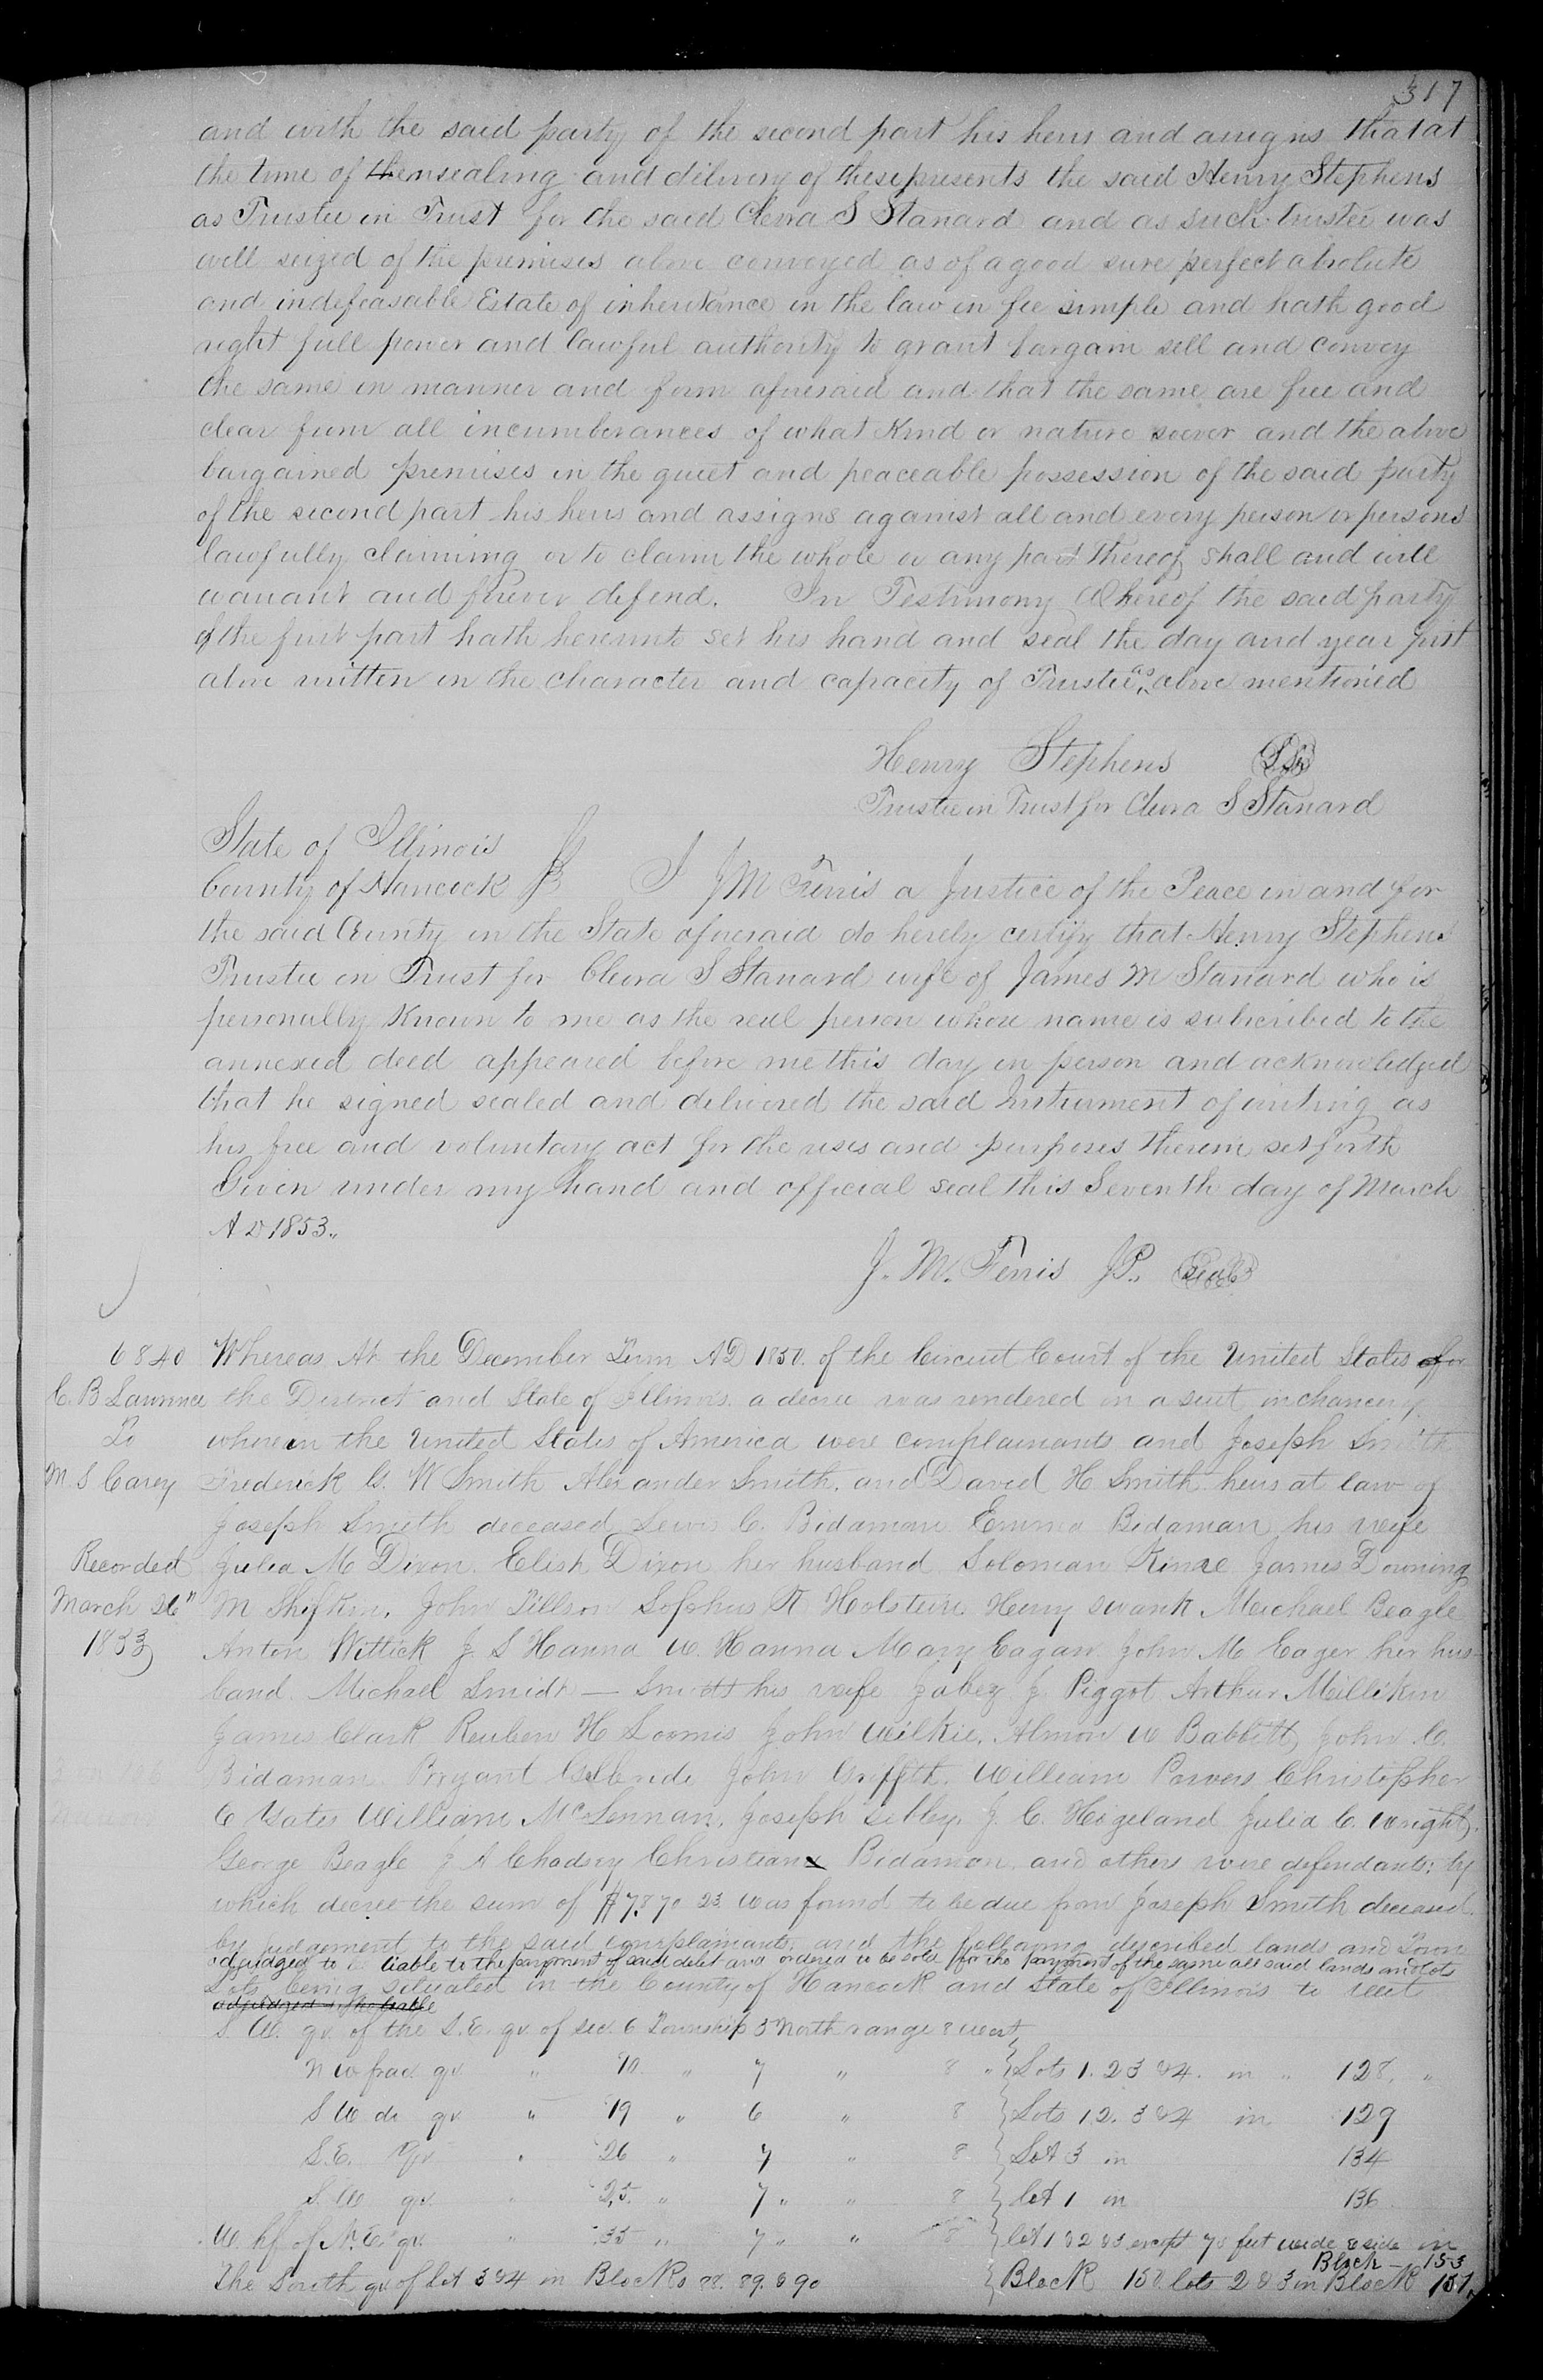 317
and with the said party of the second part his heirs and assigns that at
the time of the ensealing and delivery of these presents the said Henry Stephens
as Trustee in Trust for the said Clera S Stanard and as such trustee was
well seized of the premises above conveyed as of a good sure perfect absolute
and indefeasable Estate of inheritance in the law in fee simple and hath good
right full power and lawful authority to grant bargain sell and convey
the same in manner and form aforesaid and that the same are free and
clear from all incumberances of what Kind or nature soever and the above
bargained premises in the quiet and peaceable possession of the said party
of the second part his heirs and assigns against all and every person or persons
lawfully claiming or to claim the whole or any part thereof shall and will
warrant and forever defend. In Testimony Whereof the said party
of the first part hath hereunto set his hand and seal the day and year first
above written in the character and capacity of Trustee as above mentioned
Henry Stephens LS
Trustee in Trust for Clera S Stanard
State of Illinois
County of Hancock I J M Ferris a Justice of the Peace in and for
the said County in the State aforesaid do hereby certify that Henry Stephens
Trustee in Trust for Clera S Stanard wife of James M Stanard who is
personally Known to me as the real person whose name is subscribed to the
annexed deed appeared before me this day in person and acknowledged
that he signed sealed and delivered the said Instrument of writing as
his free and voluntary act for the uses and purposes therein set forth
Given under my hand and official seal this Seventh day of March
A D 1853.
J. M. Ferris JP. Seal
6840
C. B Lawrence
To
M. S Carey
Recorded
March 26"
1853
Whereas At the December Term AD 1850. of the Circuit Court of the United States for
the District and State of Illinois. a decree was rendered in a suit in chancery
wherein the United States of America were complainants and Joseph Smith
Frederick G. W Smith Alexander Smith, and David H Smith heirs at law of
Joseph Smith deceased Lewis C. Bidaman Emma Bidaman his wife
Julia M Dixon. Elish Dixon her husband Soloman Kinze James Downing
M Shifkin, John Tillson Sophus K Holstein Henry Swank Meichael Beagle
Anton Wittick J S Hanna W. Hanna Mary Eagan John M Eager her hus-
band. Michael Smidt — Smidt his wife Jabez J. Piggot Arthur Millikin
James Clark Reuben H Loomis John Wilkie, Almon W Babbitt John C.
Bidaman Bryant John Griffith. William Powers Christopher
C Yates William McLennan, Joseph Sibley. J. C. Higeland Julia C. Wright,
George Beagle J A Chadsey Christian Bidamon, and others were defendants; by
which decree the sum of $7870 23 was found to be due from Joseph Smith deceased.
by judgement to the said complainants, and the following described lands and Town
adjudged to be liable to the payment of said debt and ordered to be sold for the payment of the same all said lands and lots
Lots being situated in the County of Hancock and State of Illinois to wit
adjudged to be liable
S. W. qr. of the S.E. qr. of sec. 6 Township 5 North range 8 west,
N W frac qr " 10 " 7 " 8 " } Lots 1. 2 3 & 4. in " 128. "
S W do qr " 19 " 6 " 8 } Lots 1 2. 3 & 4 in 129
S.E. qr " 26 " 7 " 8 } Lot 3 in 134
S. W qr. " 25. " 7 " " 8 } lot 1 in 136
W. hf of N. E. qr. " 35 " 7 " " 8 } lot 1 & 2 & 3 except 70 feet wide E side in
Block — 153
The South qr of lot 3 & 4 in Blocks 88. 89. & 90 } Block 150. lots 2 & 3 in Block 157,